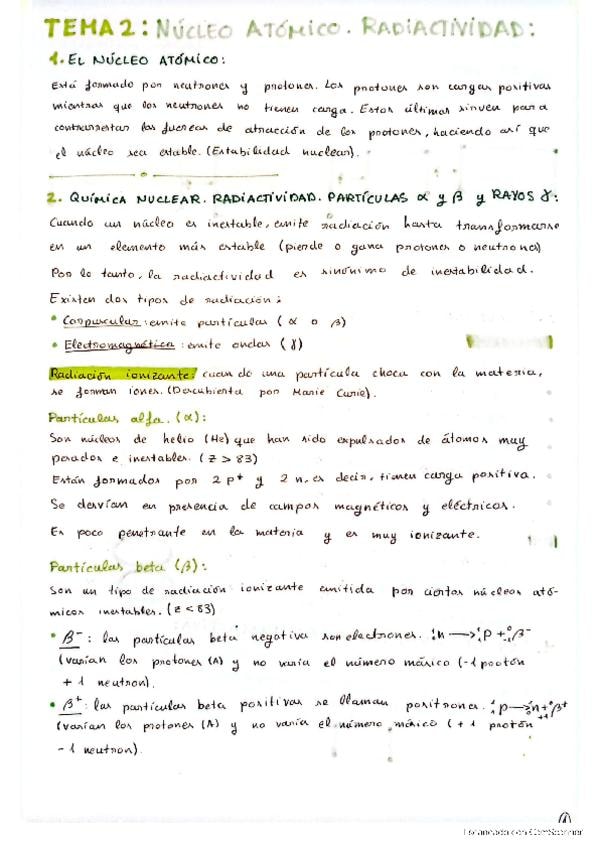 TEMA 2: NÚCLEO ATÓMICO. RADIACTIVIDAD:
1. EL NÚCLEO ATÓMICO:
Está formado por neutrones y protones. Los protones son cargas positivas
mientras que los neutrones no tienen carga. Estos últimos sirven para
contrarrestar las fuerzas de atracción de los protones, haciendo así que
el núcleo sea estable. (Estabilidad nuclear).
2. QUÍMICA NUCLEAR. RADIACTIVIDAD. PARTÍCULAS α y β y RAYOS γ:
Cuando un núcleo es inestable, emite radiación hasta transformarse
en un elemento más estable (pierde o gana protones o neutrones)
Por lo tanto, la radiactividad es sinónimo de inestabilidad.
Existen dos tipos de radiación:
• Corpuscular: emite partículas (α o β)
• Electromagnética: emite ondas (γ)
Radiación ionizante: cuando una partícula choca con la materia,
se forman iones. (Descubierta por Marie Curie).
Partículas alfa. (α):
Son núcleos de helio (He) que han sido expulsados de átomos muy
pesados e inestables. (Z > 83)
Están formados por 2 p⁺ y 2 n, es decir, tienen carga positiva.
Se desvían en presencia de campos magnéticos y eléctricos.
Es poco penetrante en la materia y es muy ionizante.
Partículas beta (β):
Son un tipo de radiación ionizante emitida por ciertos núcleos ató-
micos inestables. (Z < 83)
• β⁻: las partículas beta negativa son electrones. ¹₀n → ¹₁p + ⁰₋₁β⁻
(varían los protones (A) y no varía el número másico (-1 protón
+ 1 neutron).
• β⁺: las partículas beta positivas se llaman positrones. ¹₁p → ¹₀n + ⁰₊₁β⁺
(varían los protones (A) y no varía el número másico (+ 1 protón
- 1 neutron).
Escaneado con CamScanner